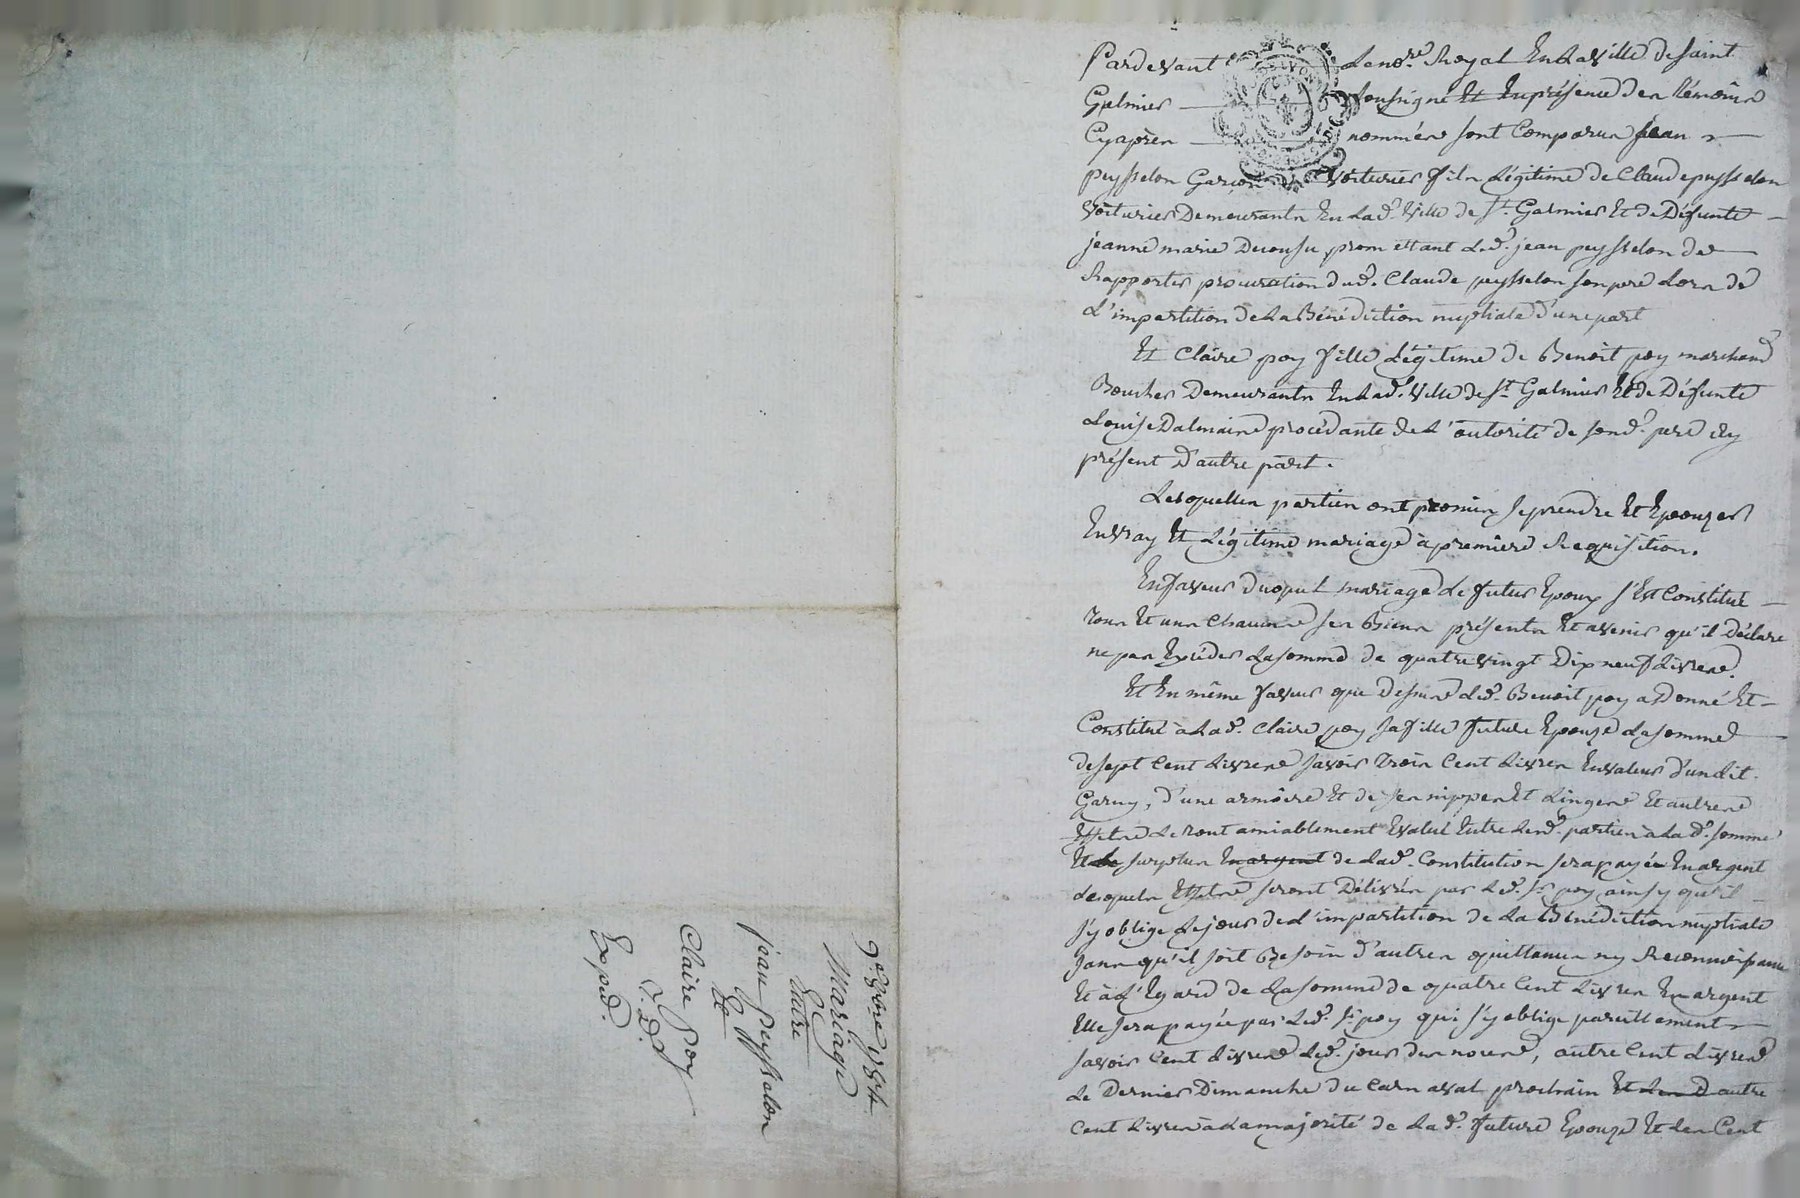 Pardevant Le no.re Royal En La ville de saint
Galmier soussigné Et En présence des témoins
Cyaprès nommés sont Comparus jean
peysselon Garçon Voiturier fils Légitime de Claude peysselon
Voiturier Demeurants En Lad. Ville de St. Galmier Et de Défunte
jeanne marie Ducousu, promettant Led. jean peysselon de
Rapporter procuration dud. Claude peysselon son pere Lors de
L'impartition de La Bénédiction nuptiale d'une part
Et Claire poy fille Légitime de Benoit poy marchand
Boucher Demeurants En Lad. Ville de St. Galmier Et de Défunte
Louise Dalmaine procédante de L'autorité de sond. pere icy
présent D'autre part.
Lesquelles parties ont promis se prendre Et Epouzer
En vray Et Légitime mariage à premiere Requisition.
En faveur duquel mariage Le futur Epoux s'Est Constitué
tous Et uns Chacuns ses Biens présents Et avenir qu'il Déclare
ne pas Excéder La somme de quatre vingt Dix neuf Livres.
Et En même faveur que Dessus Led. Benoit poy a Donné Et
Constitué à Lad. Claire poy sa fille future Epouze La somme
de sept Cent Livres savoir trois Cent Livres En valeur d'un Lit
Garny, d'une armoire Et de ses nippes Et Linges Et autres
Effets Le tout amiablement Evalué Entre Lesd. parties à Lad. somme
Et Le surplus En argent de Lad. Constitution sera payée En argent
Lesquels Effets seront Délivrés par Led. Sr. poy ainsy qu'il
s'y oblige Le jour de L'impartition de La Bénédiction nuptiale
sans qu'il soit Besoin d'autres quittances ny Reconnoissance
Et à L'Egard de La somme de quatre Cent Livres En argent
Elle sera payée par Led. Sr. poy qui s'y oblige pareillement
savoir Cent Livres Led. jour des noces, autre Cent Livres
Le Dernier Dimanche du Carnaval prochain Et Les D autre
Cent Livres à La majorité de Lad. future Epouze Et Les Cent
Mariage
Entre
jean Peysselon
Et
Claire Poy
Exped.